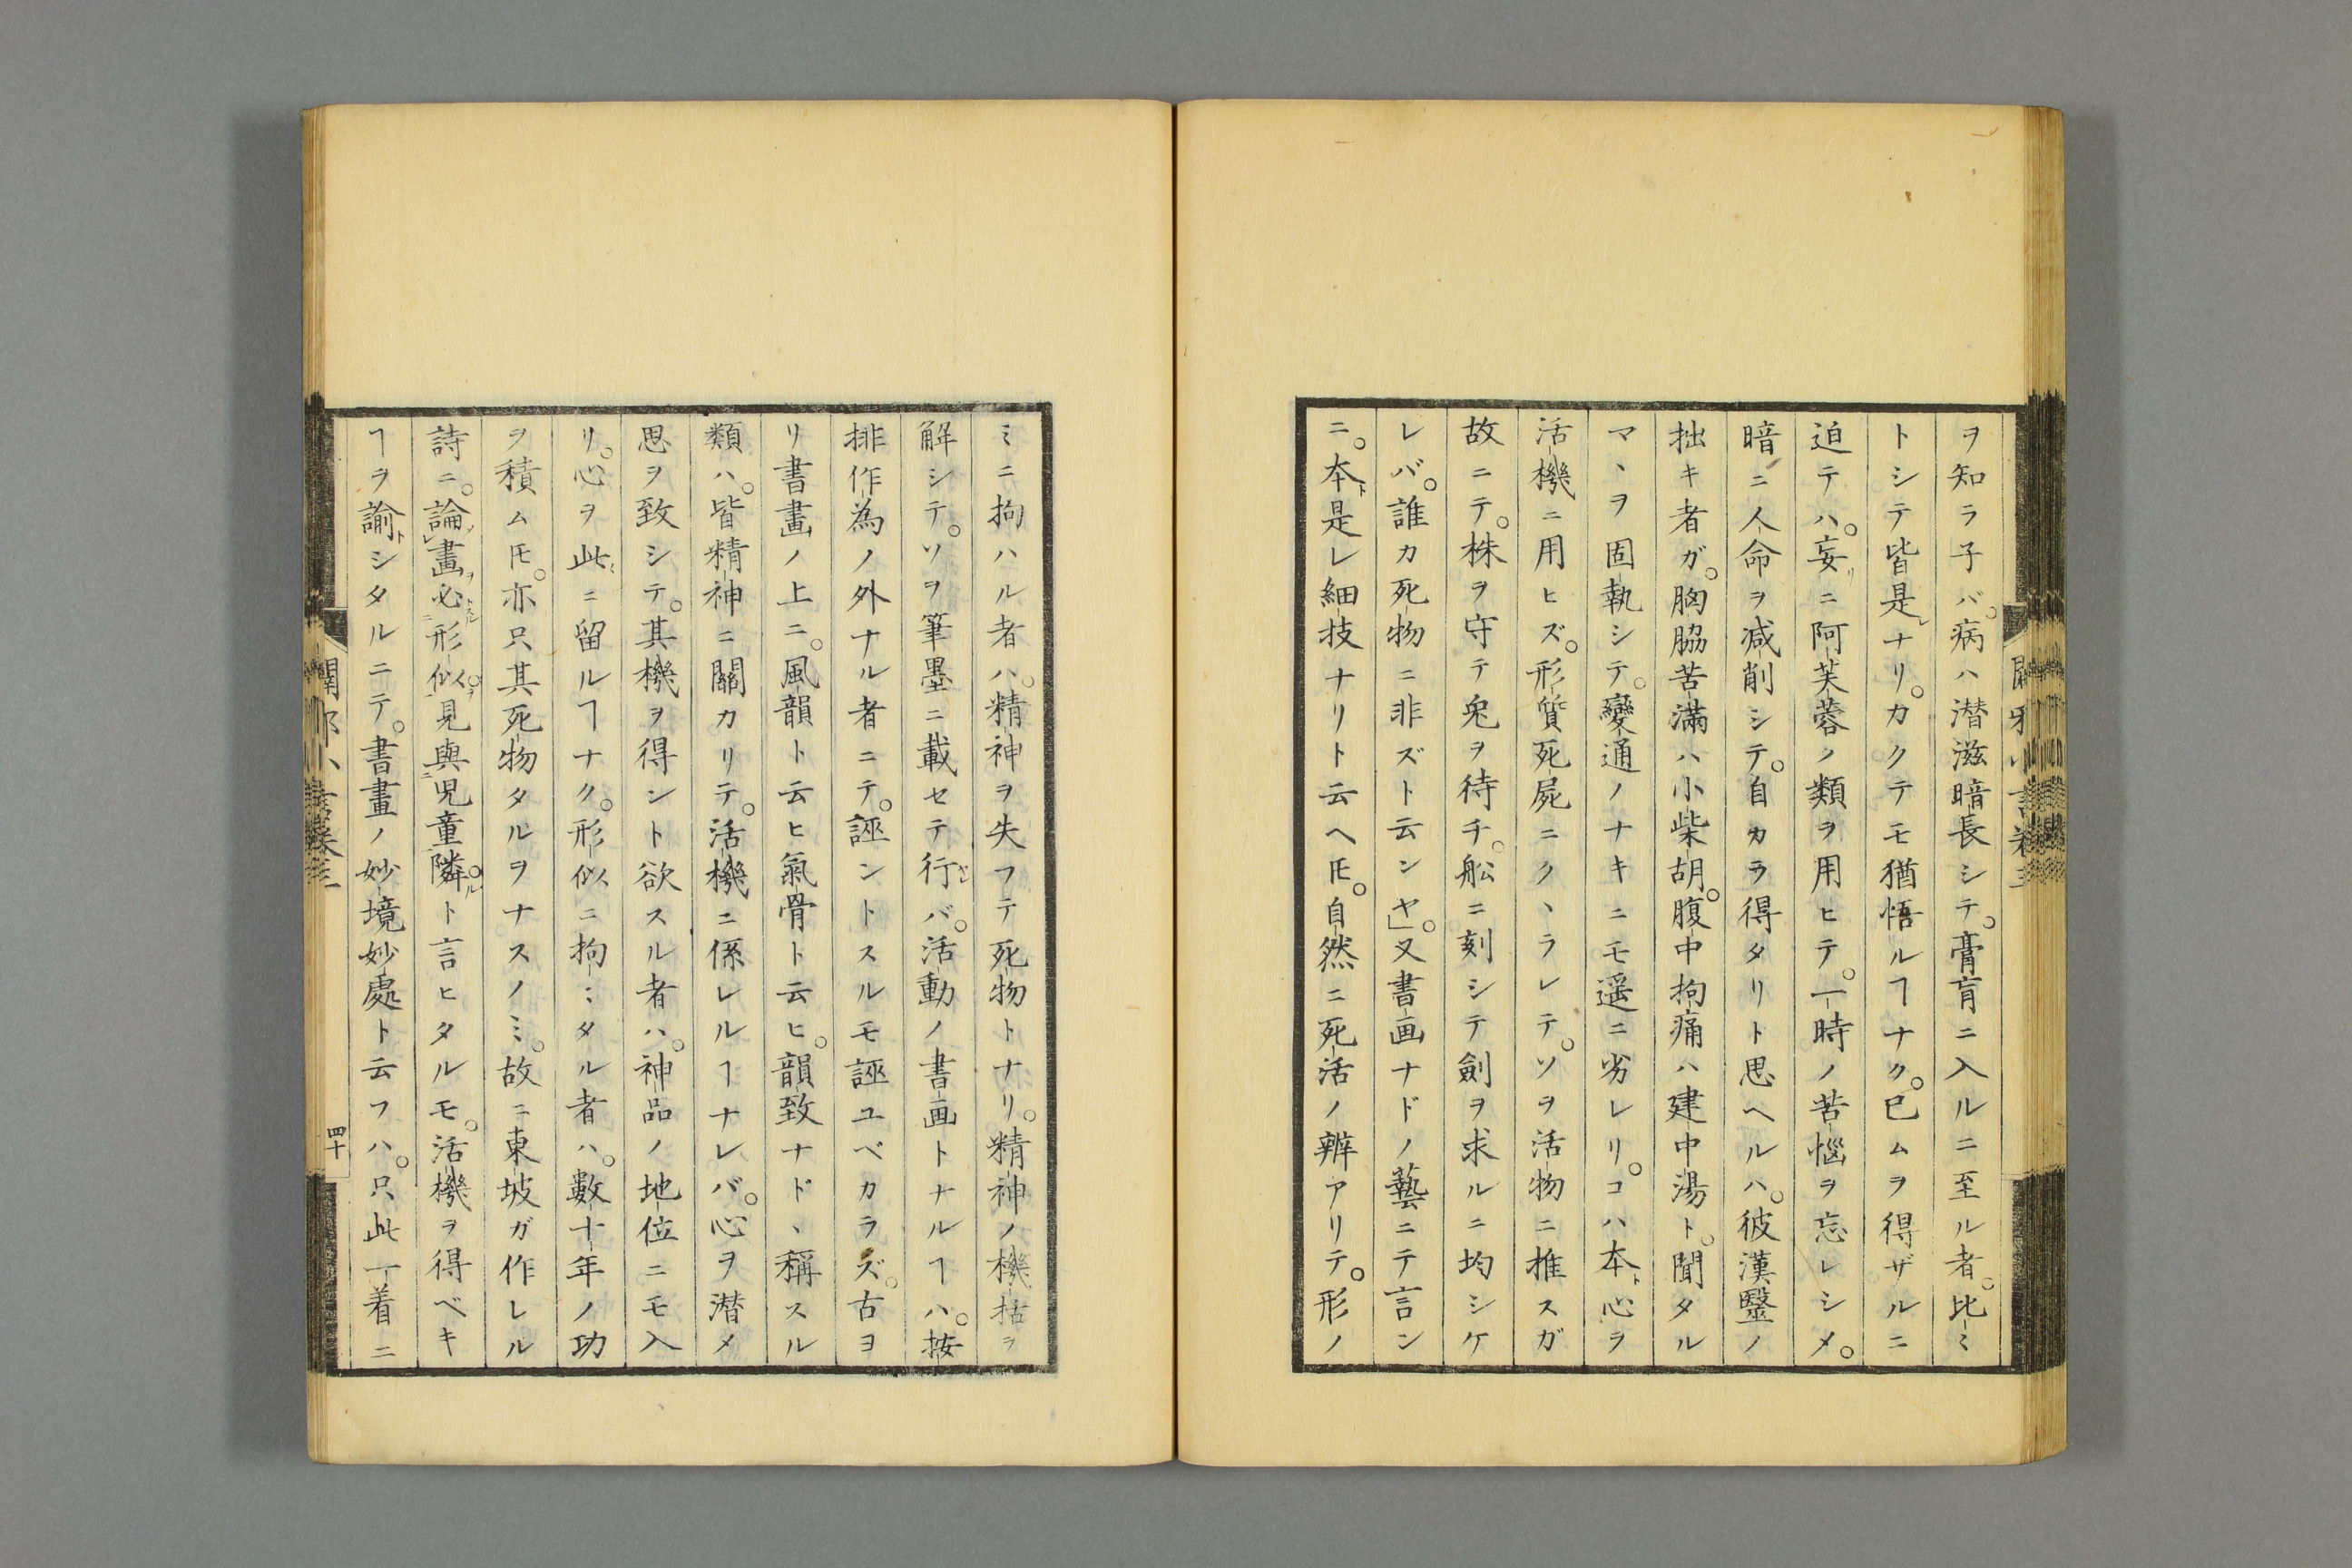 ヲ知ラ子バ。病ハ潜滋暗長シテ。膏肓ニ入ルニ至ル者。比ミ
トシテ皆是レナリ。カクテモ猶悟ルヿナク。已ムヲ得ザルニ
迫テハ。妄リニ阿芙蓉ノ類ヲ用ヒテ。一時ノ苦惱ヲ忘レシメ。
暗ニ人命ヲ減削シテ。自カラ得タリト思ヘルハ。彼漢醫ノ
拙キ者ガ。胸脇苦滿ハ小柴胡。腹中拘痛ハ建中湯ト。聞タル
マヽヲ固執シテ。變通ノナキニモ遥ニ劣レリ。コハ本ト心ヲ
活機ニ用ヒズ。形質死屍ニクヽラレテ。ソヲ活物ニ推スガ
故ニテ。株ヲ守テ兎ヲ待チ。舩ニ刻シテ劍ヲ求ルニ均シケ
レバ。誰カ死物ニ非ズト云ンヤ。」又書画ナドノ藝ニテ言ン
ニ。本ト是レ細技ナリト云ヘ𪜈。自然ニ死活ノ辨アリテ。形ノ
ミニ拘ハル者ハ。精神ヲ失フテ死物トナリ。精神ノ機括ヲ
解シテ。ソヲ筆墨ニ載セテ行ヤレバ。活動ノ書画トナルヿハ。按
排作為ノ外ナル者ニテ。誣ントスルモ誣ユベカラズ。古ヨ
リ書畫ノ上ニ。風韻ト云ヒ氣骨ト云ヒ。韻致ナドヽ稱スル
類ハ。皆精神ニ關カリテ。活機ニ係レルヿナレバ。心ヲ潜メ
思ヲ致シテ。其機ヲ得ント欲スル者ハ。神品ノ地位ニモ入
リ。心ヲ此ニ留ルヿナク。形似ニ拘ミタル者ハ。數十年ノ功
ヲ積ム𪜈。亦只其死物タルヲナスノミ。故ニ東坡ガ作レル
詩ニ。論畫必形似。見與児童隣。ト言ヒタルモ。活機ヲ得ベキ
ヿヲ諭トシタルニテ。書畫ノ妙境妙處ト云フハ。只此一着ニ
四十